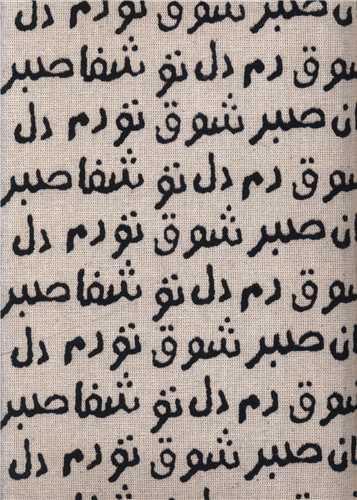 ان صبر شوق تو دم دل
شوق دم دل تو شفا صبر
ان صبر شوق تو دم دل
شوق دم دل تو شفا صبر
ان صبر شوق تو دم دل
شوق دم دل تو شفا صبر
ان صبر شوق تو دم دل
شوق دم دل تو شفا صبر
ان صبر شوق تو دم دل